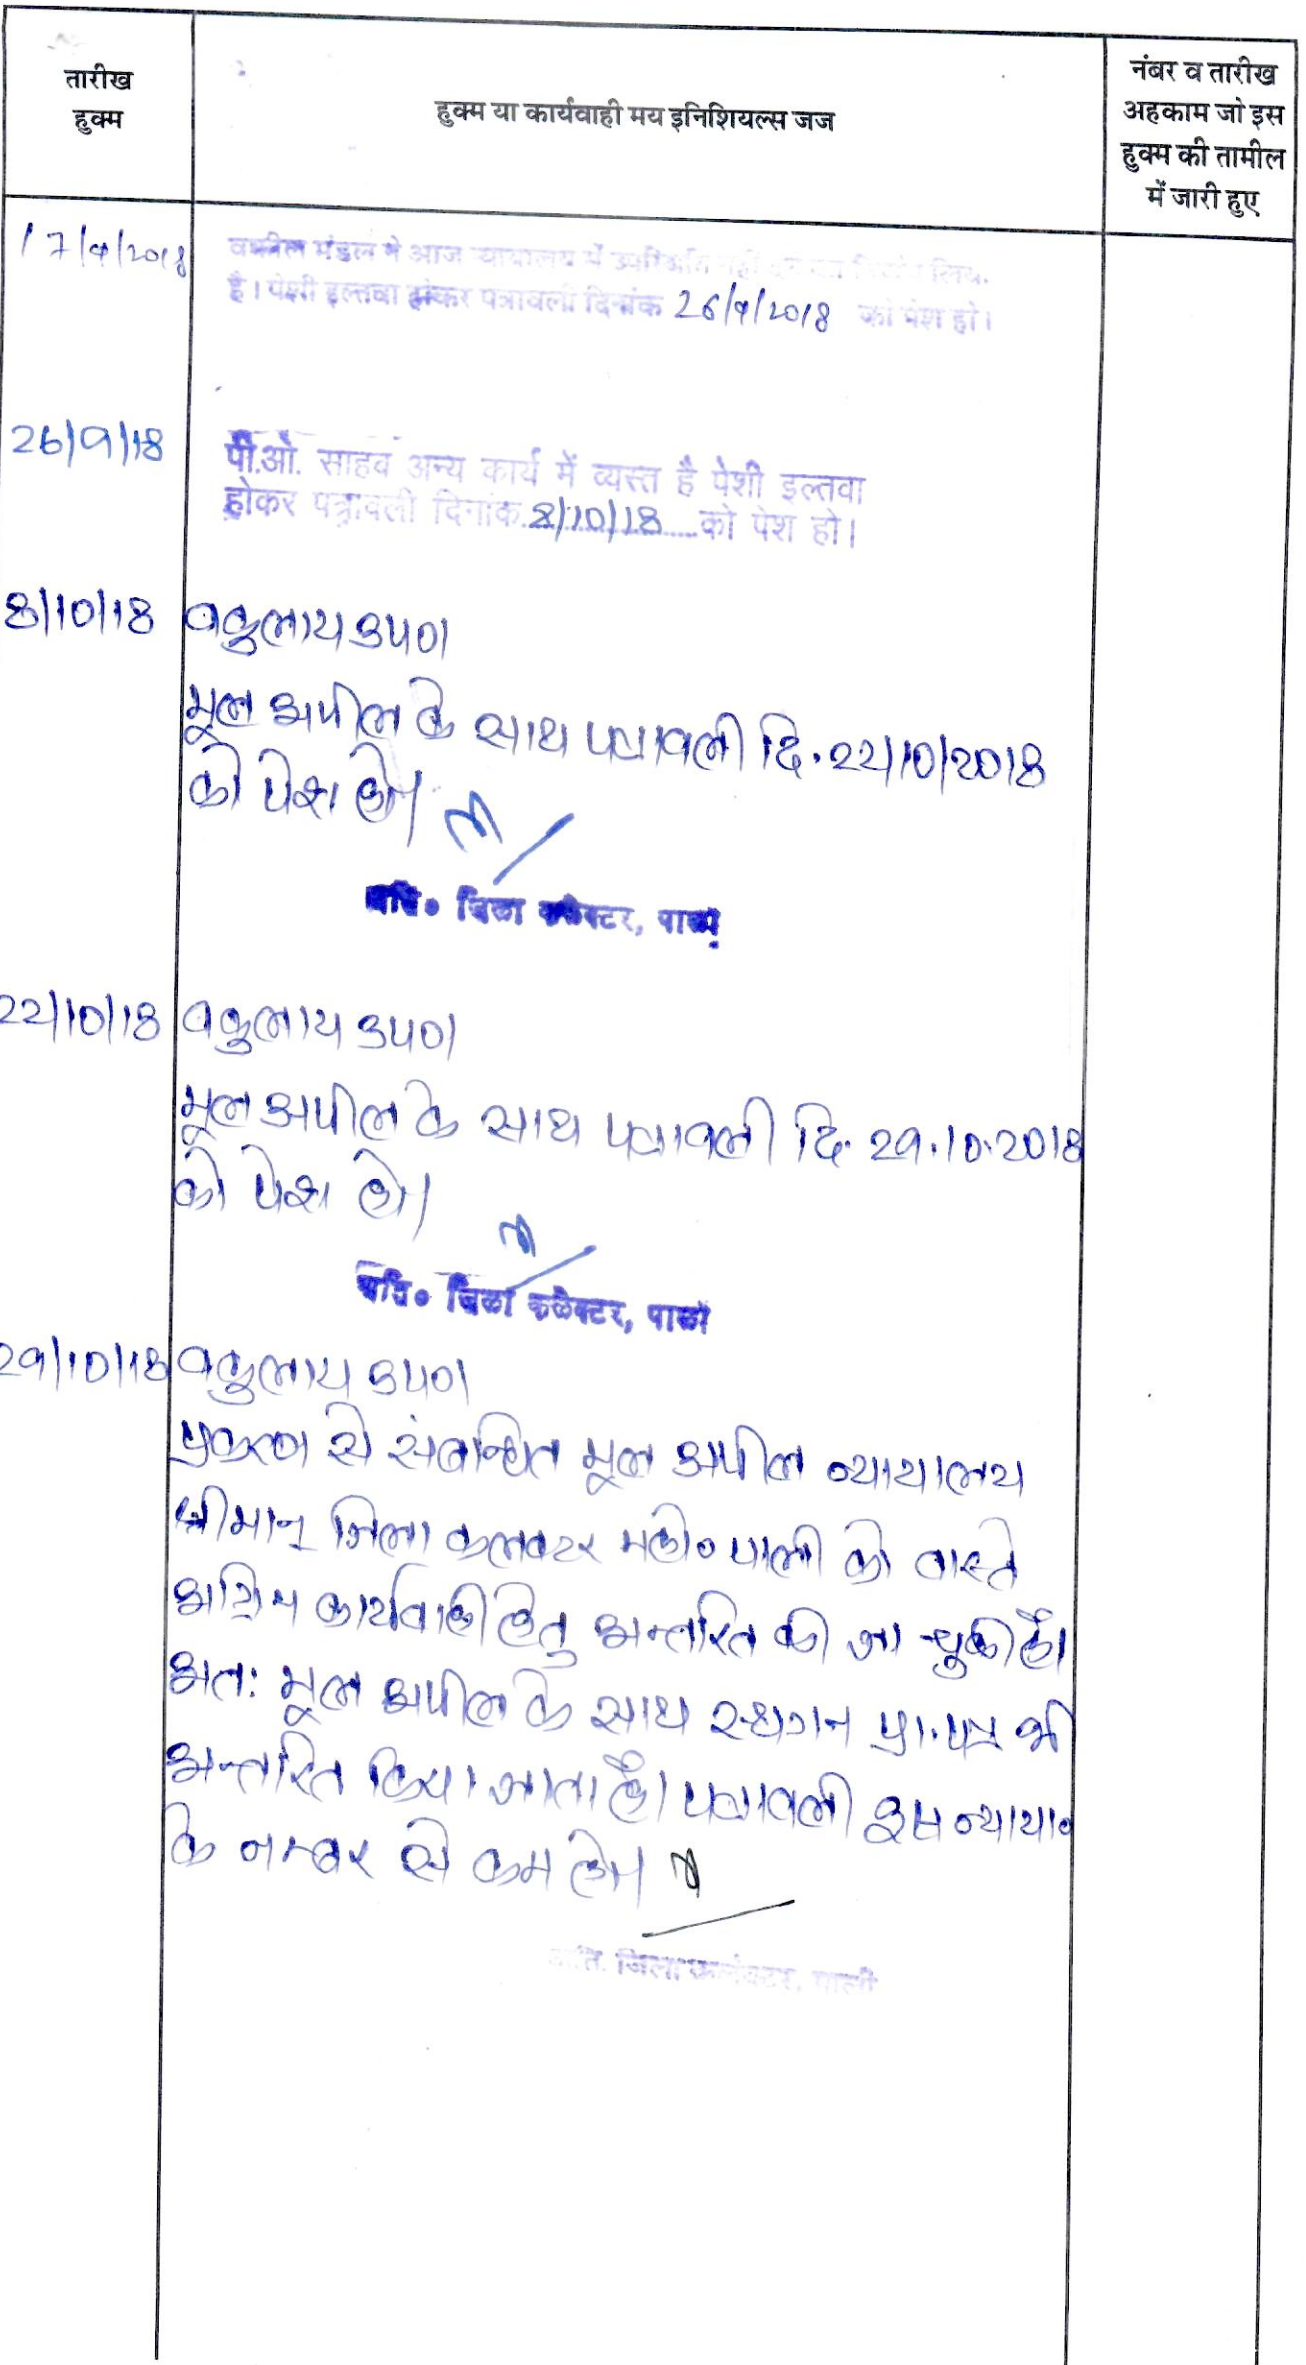 तारीख
हुक्म
हुक्म या कार्यवाही मय इनिशियल्स जज
नंबर व तारीख
अहकाम जो इस
हुक्म की तामील
में जारी हुए
17/9/2018
वकील मंडल ने आज न्यायालय में उपस्थिति नहीं
है। पेशी इल्तवा होकर पत्रावली दिनांक 26/9/2018 को पेश हो।
26/9/18
पी.ओ. साहव अन्य कार्य में व्यस्त है पेशी इल्तवा
होकर पत्रावली दिनांक 8/10/18 को पेश हो।
8/10/18 वकुलाय उपण
मूल अपील के साथ पत्रावली दि. 22/10/2018
को पेश हो।
अति० जिला कलेक्टर, पाली
22/10/18 वकुलाय उपण
मूल अपील के साथ पत्रावली दि. 29.10.2018
को पेश हो।
अति० जिला कलेक्टर, पाली
29/10/18 वकुलाय उपण
प्रकरण से संबन्धित मूल अपील न्यायालय
श्रीमान् जिला कलक्टर महो० पाली को वास्ते
अग्रिम कार्यवाही हेतु अन्तरित की जा चुकी है।
अतः मूल अपील के साथ स्थगन प्रा.पत्र भी
अन्तरित किया जाता है। पत्रावली इस न्याया०
के नम्बर से कम हो।
अति. जिला कलेक्टर, पाली